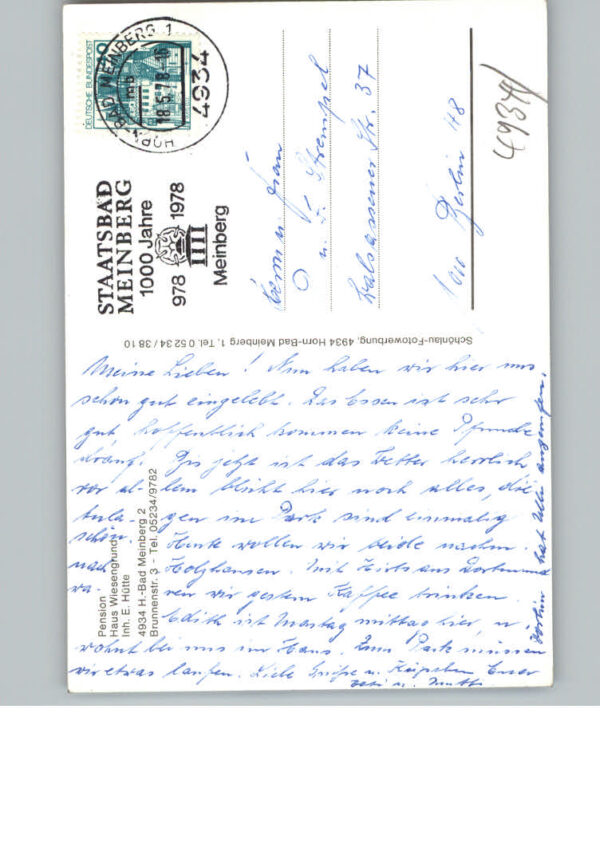 Meine Lieben! Nun haben wir hier uns
schon gut eingelebt. Das Essen ist sehr
gut, hoffentlich kommen keine Pfunde
drauf. Bis jetzt ist das Wetter herrlich,
vor allem blüht hier noch alles, die
Anlagen im Park sind einmalig
schön. Heute wollen wir beide nachm.
nach Holzhausen. Mit aus Dortmund
waren wir gestern Kaffee trinken.
Edith ist Montag mittag hier, u.
wohnt bei uns im Haus. Zum Park müssen
wir etwas laufen. Liebe Grüsse u. Küsschen Euer
u. Mutti
hat Ulli angerufen.
Pension
Haus Wiesengrund
Inh. E. Hütte
4934 H.-Bad Meinberg 2
Brunnenstr. 3 - Tel. 05234/9782
Schönlau-Fotowerbung, 4934 Horn-Bad Meinberg 1, Tel. 0 52 34 / 38 10
STAATSBAD
MEINBERG
1000 Jahre
978 1978
Meinberg
DEUTSCHE BUNDESPOST
HORN-BAD MEINBERG 1
mb
18.5.78-16
4934
Frau
u. Strempel
Str. 37
1000 Berlin 48
4934